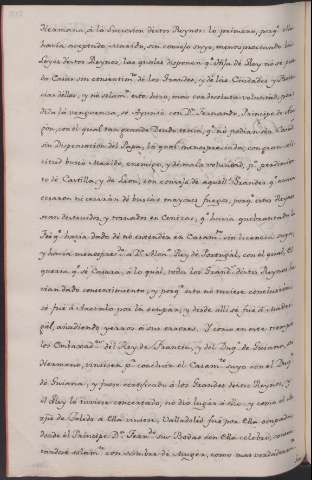 Hermana, â la Succesion destos Reynos: lo primero, porqᵉ ella
havia aceptado Marido, sin consejo suyo, menospreciando las
Leyes destos Reynos, las quales disponen qᵉ Hija de Rey no se pue-
da Casar sin consentimᵗᵒ de los Grandes, y de las Ciudades y Provin-
cias dellos, y nó solamᵗᵉ esto hizo, mas con desoluta voluntad, per-
dida la verguenza, se Ayuntó con Dⁿ Fernando, Principe de Ara-
gòn, con el qual tan grande Deudo tenia, qᵉ no podian Casar
sin Dispensacion del Papa, lo qual menospreciado, con
busco Marido, enemigo, y de mala voluntad, pᵃ perdimien-
to de Castilla, y de Leon, con consejo de aquellˢ Grandes qᵉ
de buscar mayores fuegos, porqᵉ estos Reynos
sean destruidos, y tornados en Cenizas, qᵉ havia quebrantado la
Feé qᵉ havia dado de nó entender en Casamᵗᵒ sin licencia suya,
y havia menospredᵒ â Dⁿ Alonˢᵒ Rey de Portugal, con el qual, el
queria qᵉ se Casara, â lo qual, todos los Grandˢ destos Reynos ha-
vian dado consentimiento, y porqᵉ esto nó tuviese conclusion
se fué â Arevalo por la ocupar, y desde alli se fué â Madri-
gal, añadiendo yerros â sus errores. Y como en este tiempo
los Embaxadᵉˢ del Rey de Francia, y del Duqᵉ de Guiana, su
Hermano, viniesen pᵃ concluir el Casamᵗᵒ suyo con el Duqᵉ
de Guiana, y fuese certificado â los Grandes destos Reynos, y
el Rey lo tuviese concertado, no dió lugar â ello, y como el
de Toledo â ella viniese, Valladolid fué por ella ocupada
desde el Principe Dⁿ Fernᵈᵒ sus Bodas con ella celebró,
solamᵗᵉ con nombre de Muger, como mas verdaderamᵗᵉ